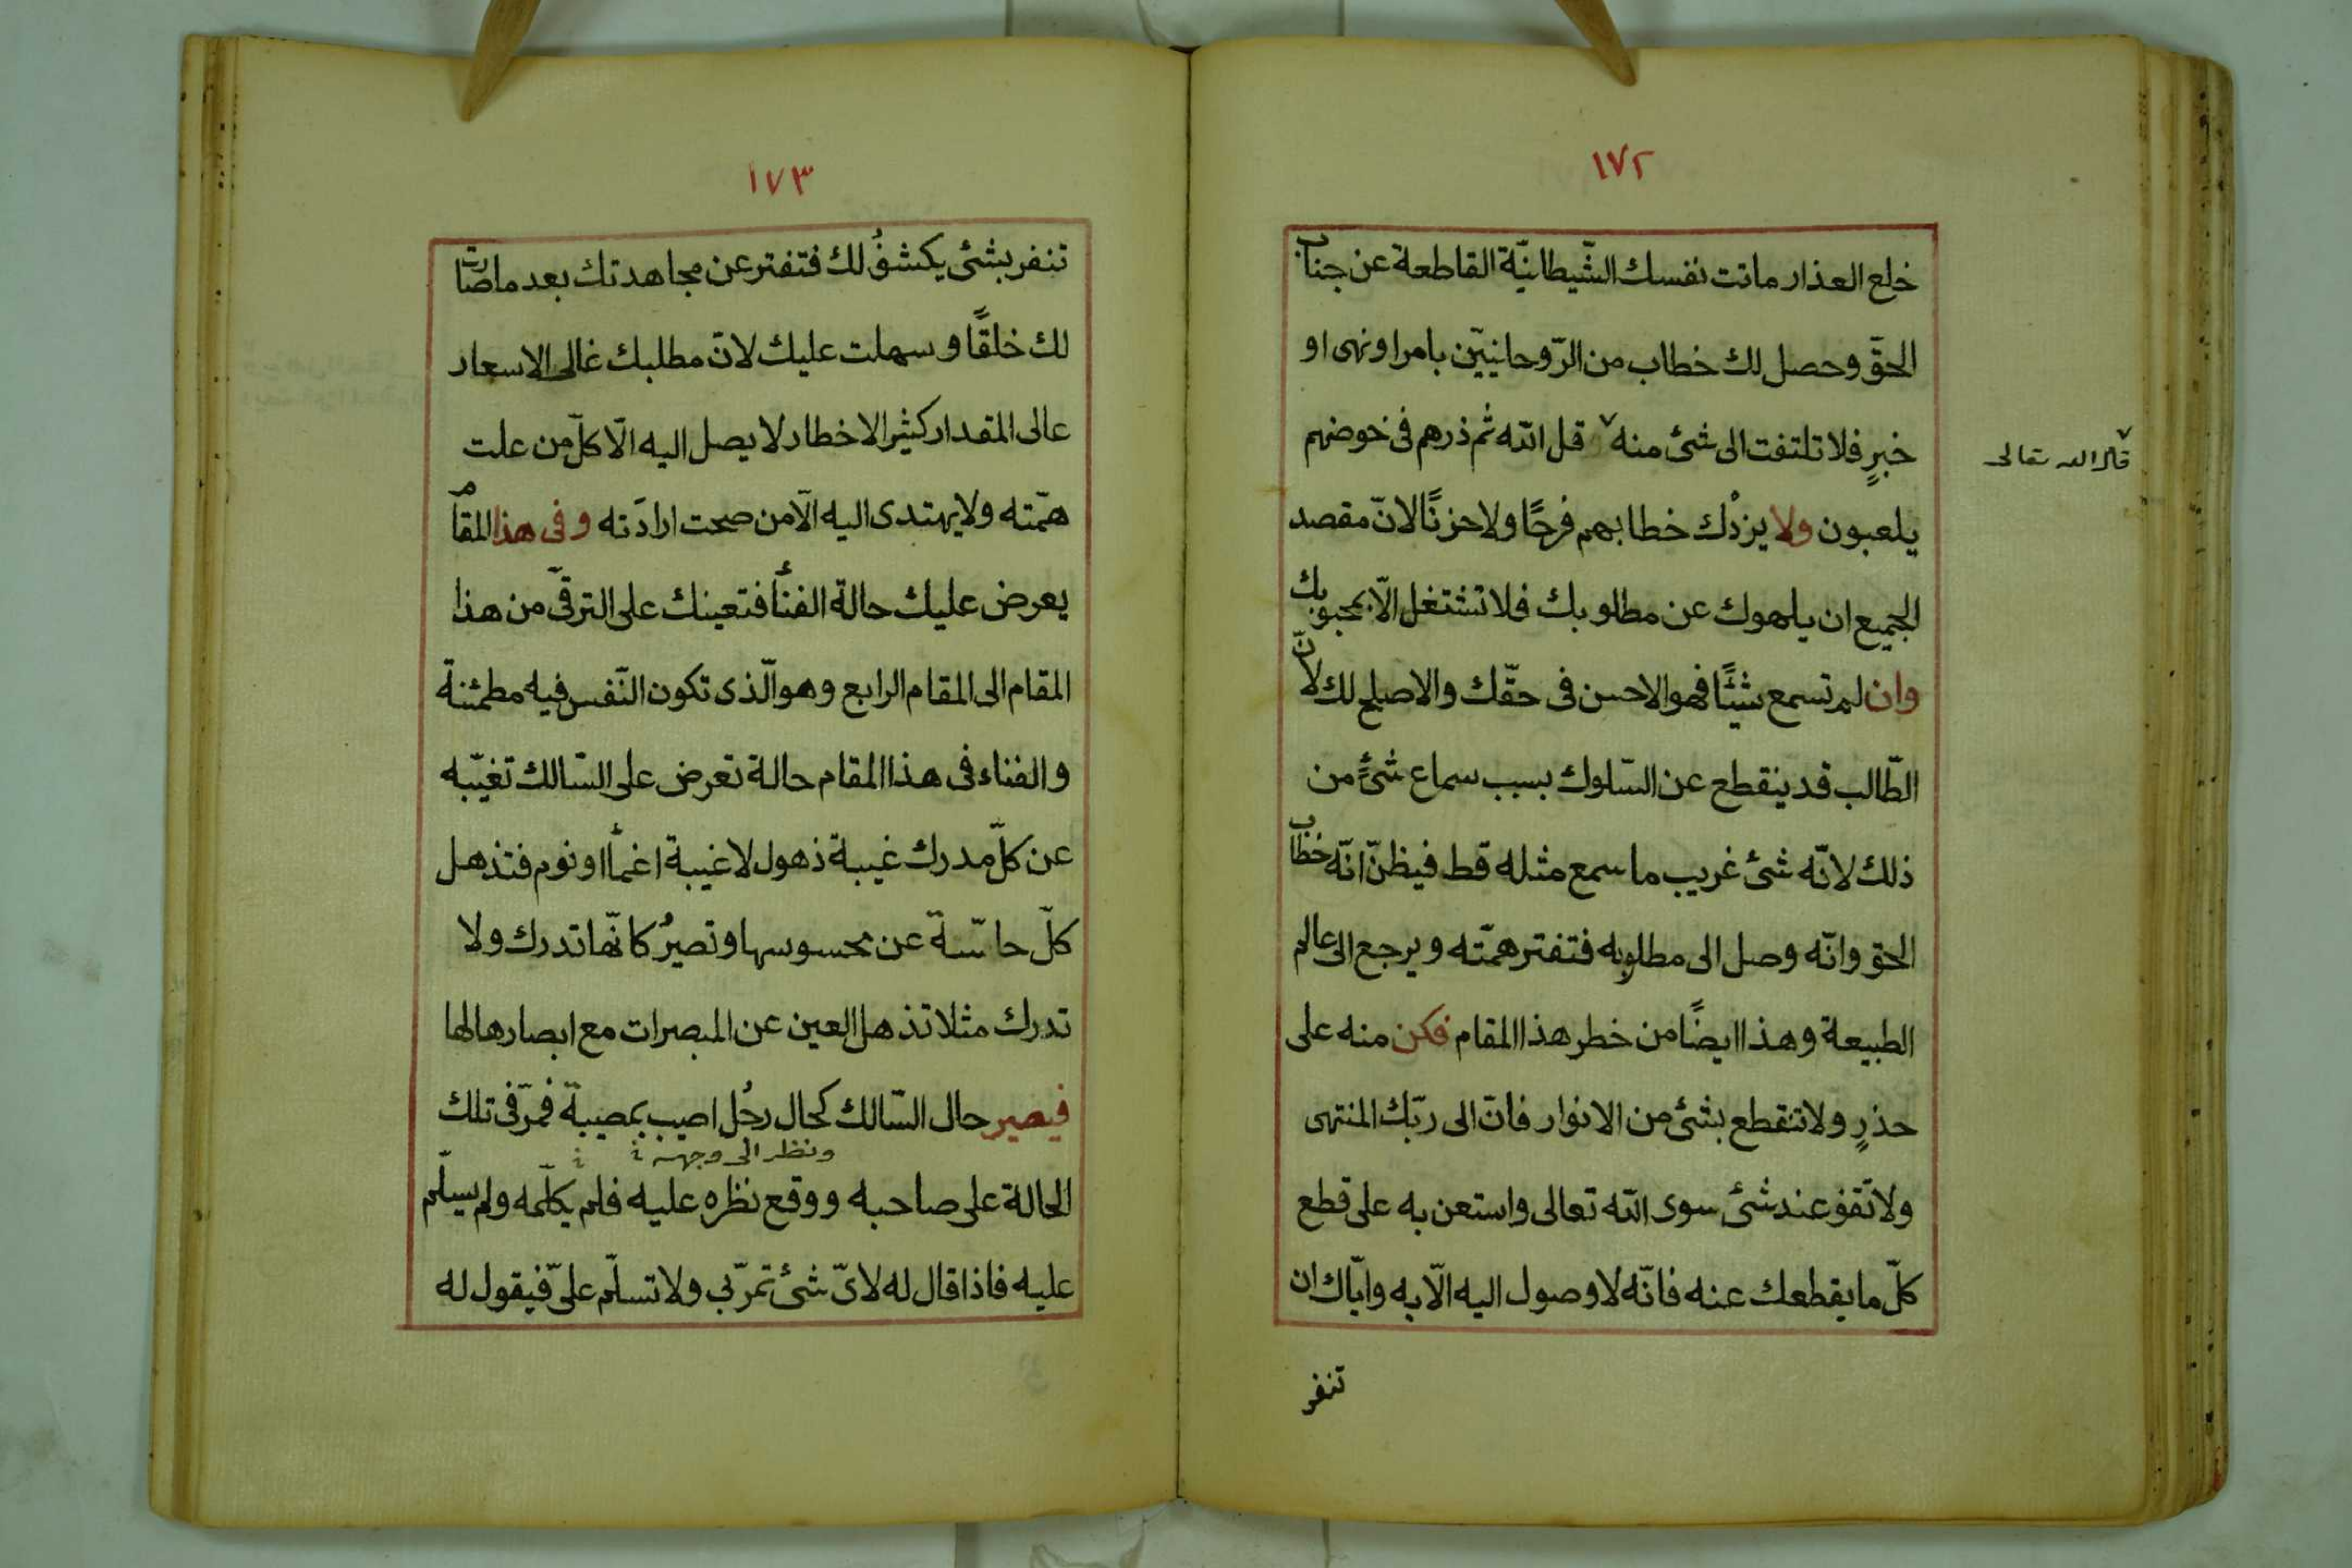 ١٧٢
خلع العذار ماتت نفسك الشّيطانيّة القاطعة عن جناب
الحقّ وحصل لك خطاب من الرّوحانيّين بامر او نهى او
خبرٍ فلا تلتفت الى شئ منه قل الله ثم ذرهم فى خوضهم
قال الله تعالى
يلعبون ولا يزدْك خطابهم فرحًا ولا حزنًا لانّ مقصد
الجميع ان يلهوك عن مطلوبك فلا تشتغل الّا بمحبوبك
وان لم تسمع شيئًا فهو الاحسن فى حقّك والاصلح لك لانّ
الطّالب قد ينقطع عن السّلوك بسبب سماع شئٍ من
ذلك لانّه شئ غريب ما سمع مثله قط فيظنّ انّه خطاب
الحق وانّه وصل الى مطلوبه فتفتر همّته ويرجع الى عالم
الطبيعة وهذا ايضًا من خطر هذا المقام فكن منه على
حذرٍ ولا تنقطع بشئ من الانوار فانّ الى ربّك المنتهى
ولا تقف عند شئ سوى الله تعالى واستعن به على قطع
كلّ ما يقطعك عنه فانّه لا وصول اليه الّا به وايّاك ان
تنفر
١٧٣
تنفر بشئ يكشفُ لك فتفتر عن مجاهدتك بعد ما صارت
لك خلقًا وسهلت عليك لانّ مطلبك غالى الاسعار
عالى المقدار كثير الاخطار لا يصل اليه الّا كلّ من علت
همّته ولا يهتدى اليه الّا من صحت ارادته وفى هذا المقام
يعرض عليك حالة الفنأ فتعينك على الترقّى من هذا
المقام الى المقام الرابع وهو الّذى تكون النّفس فيه مطمئنة
والفناء فى هذا المقام حالة تعرض على السّالك تغيّبه
عن كلّ مدرك غيبة ذهول لا غيبة اغمأ او نوم فتذهل
كلّ حاسّة عن محسوسها وتصيرُ كانّها تدرك ولا
تدرك مثلا تذهل العين عن المبصرات مع ابصارها لها
فيصير حال السّالك كحال رجُل اصيب بمصيبة فمرّ فى تلك
ونظر الى وجهه
الحالة على صاحبه ووقع نظره عليه فلم يكلّمه ولم يسلّم
عليه فاذا قال له لاىّ شئ تمرّ بى ولا تسلّم علىّ فيقول له